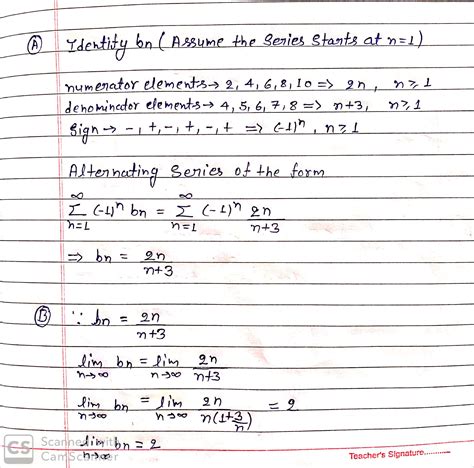 (A) Identity bn ( Assume the Series Starts at n=1 )
numerator elements → 2, 4, 6, 8, 10 => 2n , n ≥ 1
denominator elements → 4, 5, 6, 7, 8 => n+3, n ≥ 1
Sign → -, +, -, +, -, + => (-1)^n , n ≥ 1
Alternating Series of the form
∞ ∑ n=1 (-1)^n bn = ∞ ∑ n=1 (-1)^n 2n/n+3
=> bn = 2n/n+3
(B) ∵ bn = 2n/n+3
lim n→∞ bn = lim n→∞ 2n/n+3
lim n→∞ bn = lim n→∞ 2n/n(1+3/n) = 2
lim n→∞ bn = 2
CS Scanned with
CamScanner
Teacher's Signature...........